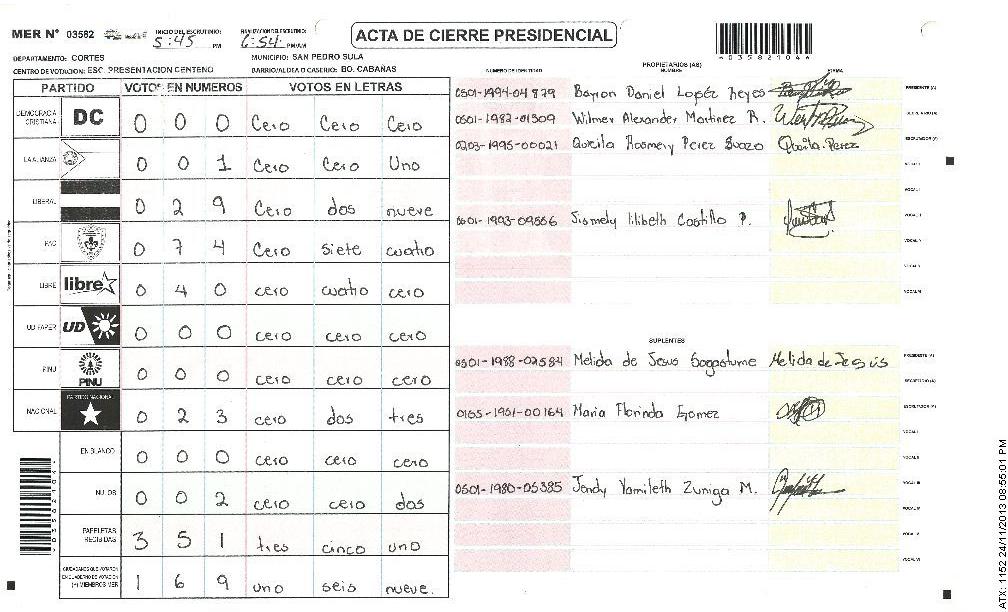 MER N° 03582 INICIO DEL ESCRUTINIO: 5:45 PM FINALIZACION DEL ESCRUTINIO: 6:54 PM/AM
ACTA DE CIERRE PRESIDENCIAL
DEPARTAMENTO: CORTES MUNICIPIO: SAN PEDRO SULA
CENTRO DE VOTACION: ESC. PRESENTACION CENTENO BARRIO/ALDEA O CASERIO: BO. CABAÑAS
PARTIDO VOTOS EN NUMEROS VOTOS EN LETRAS
DEMOCRACIA CRISTIANA DC 0 0 0 Cero Cero Cero
LA ALIANZA 0 0 1 Cero Cero Uno
LIBERAL 0 2 9 Cero dos nueve
PAC 0 7 4 Cero siete cuatro
LIBRE libre 0 4 0 cero cuatro cero
UD FAPER UD 0 0 0 cero cero cero
PINU PINU 0 0 0 cero cero cero
NACIONAL PARTIDO NACIONAL 0 2 3 cero dos tres
EN BLANCO 0 0 0 cero cero cero
NULOS 0 0 2 cero cero dos
PAPELETAS RECIBIDAS 3 5 1 tres cinco uno
CIUDADANOS QUE VOTARON EN CUADERNO DE VOTACION (+) MIEMBROS MER 1 6 9 uno seis nueve.
NUMERO DE IDENTIDAD PROPIETARIOS (AS) NOMBRE FIRMA
0501-1994-04879 Bayron Daniel López Reyes PRESIDENTE (A)
0501-1982-01309 Wilmer Alexander Martinez R. SECRETARIO (A)
0203-1995-00021 Rosmery Perez Suazo Perez ESCRUTADOR (A)
VOCAL I
VOCAL II
0501-1993-09506 Castillo P. VOCAL III
VOCAL IV
VOCAL V
VOCAL VI
SUPLENTES
0501-1988-02584 Melida de Jesus Sagastume Melida de Jesús PRESIDENTE (A)
SECRETARIO (A)
Maria Florinda Gomez ESCRUTADOR (A)
VOCAL I
VOCAL II
0501-1980-05385 Jendy Yamileth Zuniga M. VOCAL III
VOCAL IV
VOCAL V
VOCAL VI
ATX: 1152 24/11/2013 08:55:01 PM